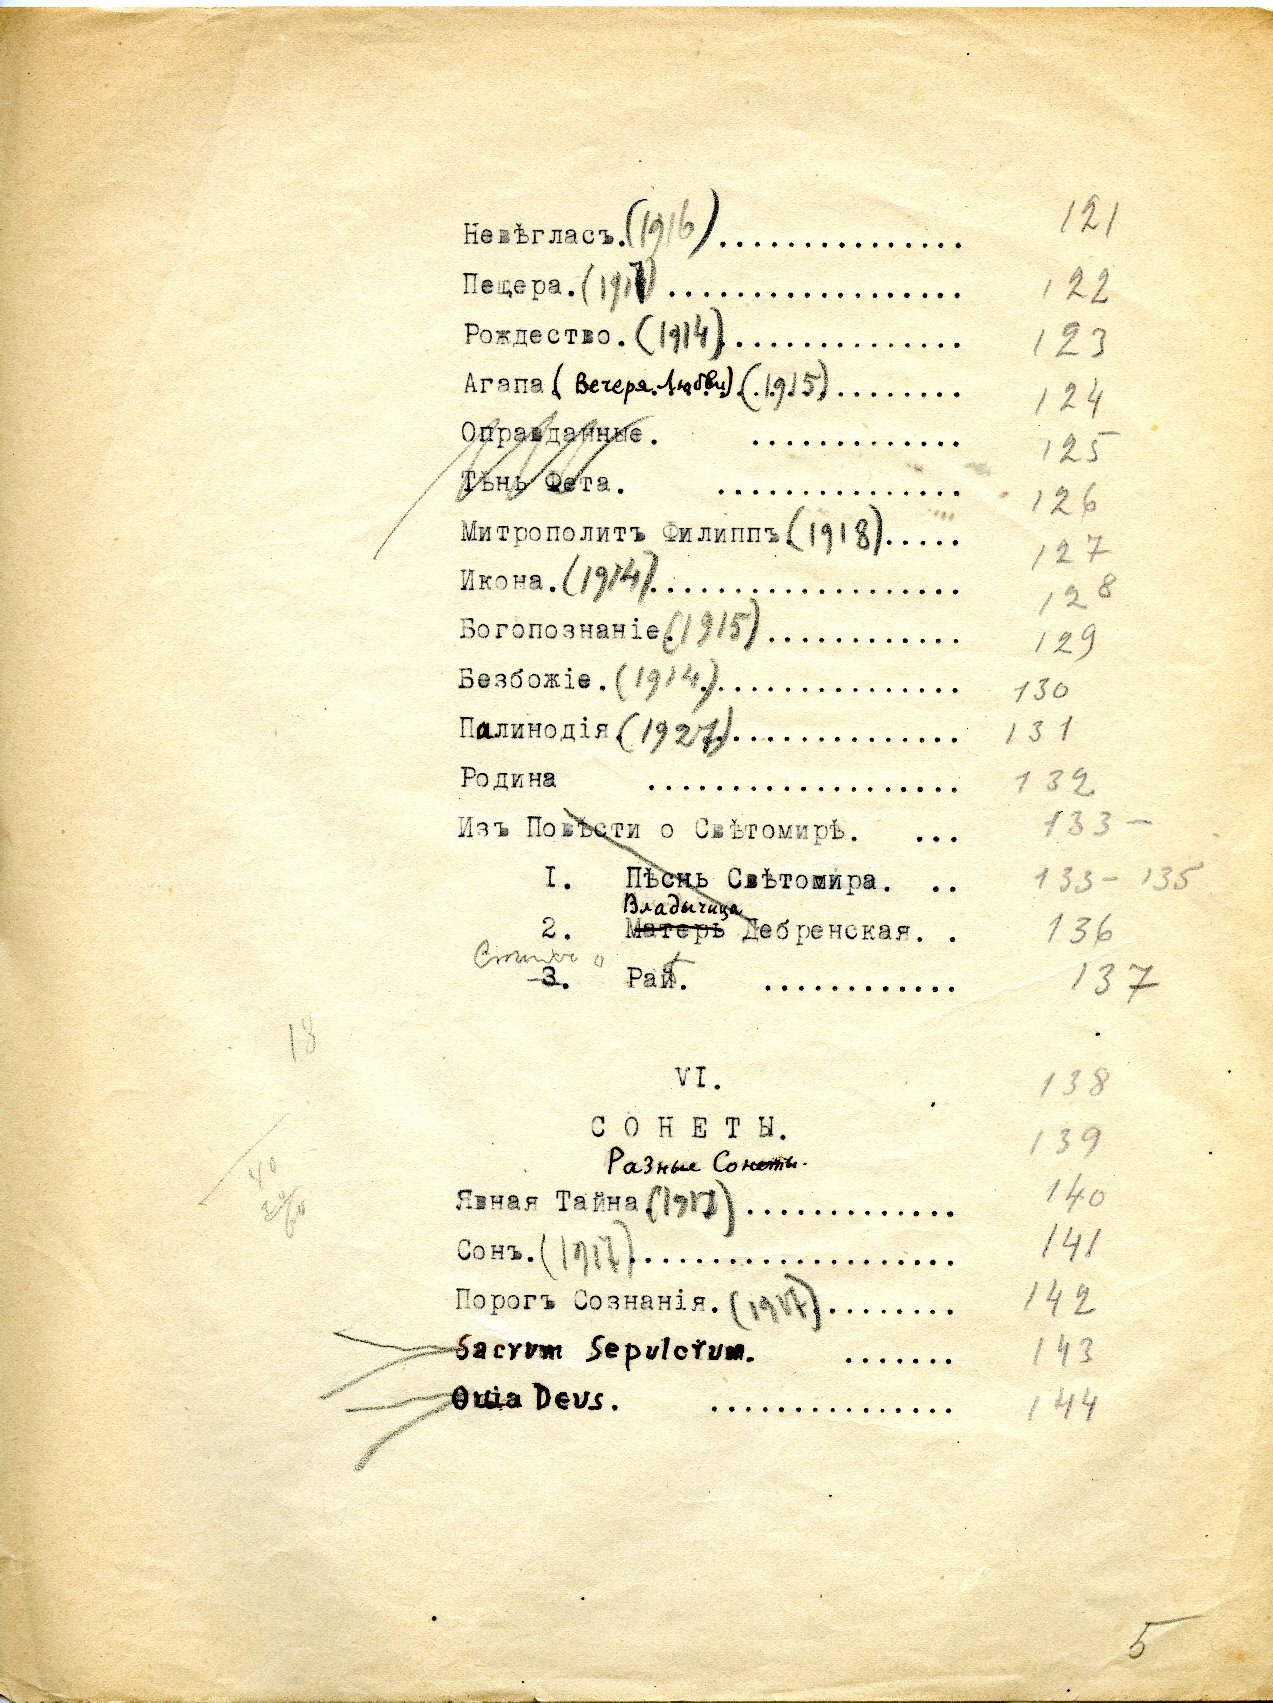 Невѣгласъ. (1916) ............... 121
Пещера. (1917) .................. 122
Рождество. (1914) .............. 123
Агапа. (Вечеря Любви) (1915) ........ 124
Оправданные. ............. 125
Тѣнь Фета. ............... 126
Митрополитъ Филиппъ. (1918) ..... 127
Икона. (1914) ................... 128
Богопознаніе. (1915) ............ 129
Безбожіе. (1914) ............... 130
Палинодія. (1927) .............. 131
Родина ................... 132
Изъ Повѣсти о Свѣтомирѣ. ... 133 —
I. Пѣснь Свѣтомира. .. 133 - 135
Владычица
2. Матерь Дебренская. . 136
3. Рай. ............ 137
18
VI. 138
СОНЕТЫ. 139
Разные Сонеты.
40
Явная Тайна. (1917) ............. 140
Сонъ. (1917) .................... 141
Порогъ Сознанія. (1917) ........ 142
Sacrum Sepulcrum. ....... 143
Quia Deus. ............... 144
5